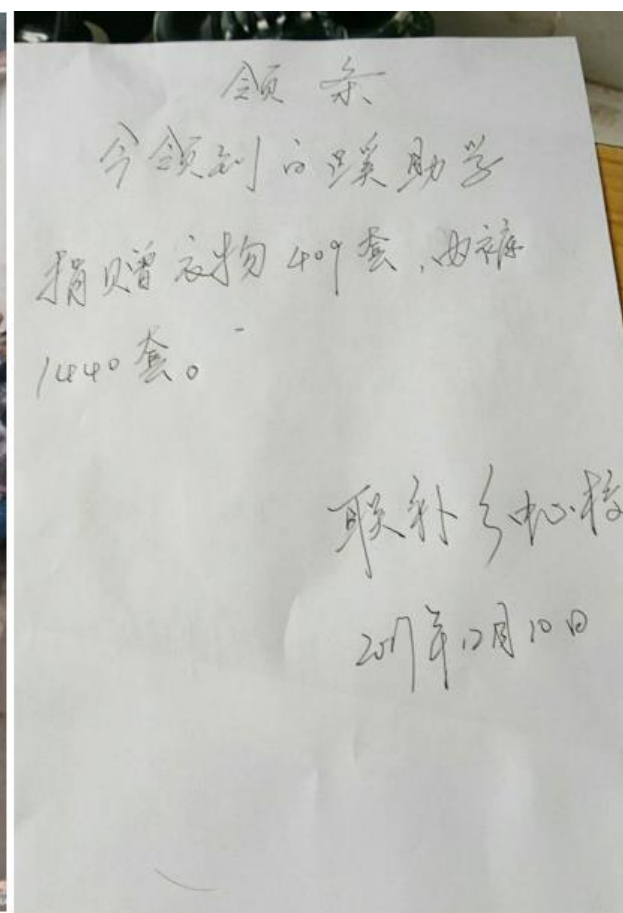 领条
今领到白溪助学
捐赠衣物409套,内裤
1440套。
联补乡中心校
2017年12月10日